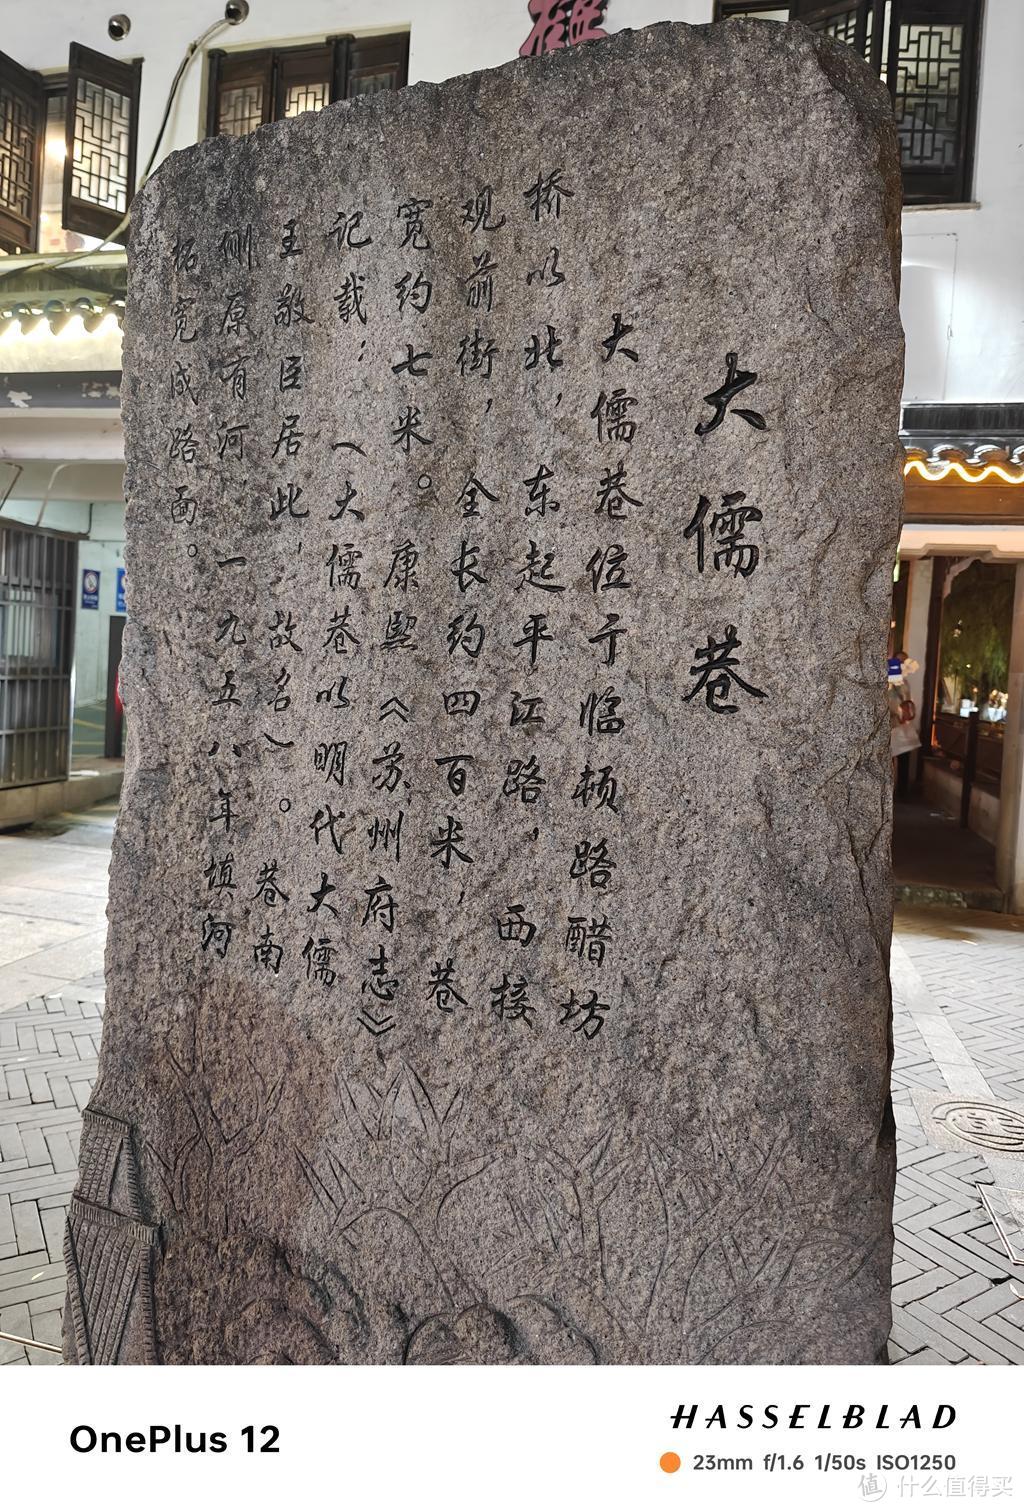 大儒巷
大儒巷位于临顿路醋坊
桥以北，东起平江路，西接
观前街，全长约四百米，巷
宽约七米。康熙《苏州府志》
记载：（大儒巷以明代大儒
王敬臣居此，故名）。巷南
侧原有河一九五八年填河
拓宽成路面。
OnePlus 12
HASSELBLAD
23mm f/1.6 1/50s ISO1250
值 什么值得买